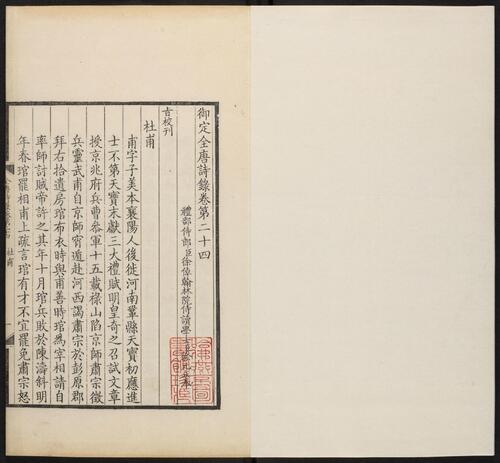 御定全唐詩錄卷第二十四
禮部侍郎臣徐倬翰林院侍讀學
旨校刊
杜甫
甫字子美本襄陽人後徙河南鞏縣天寶初應進
士不第天寶末獻三大禮賦明皇奇之召試文章
授京兆府兵曹參軍十五載祿山陷京師肅宗徵
兵靈武甫自京師宵遁赴河西謁肅宗於彭原郡
拜右拾遺房琯布衣時與甫善時琯為宰相請自
率師討賊帝許之其年十月琯兵敗於陳濤斜明
年春琯罷相甫上疏言琯有才不宜罷免肅宗怒
杜甫